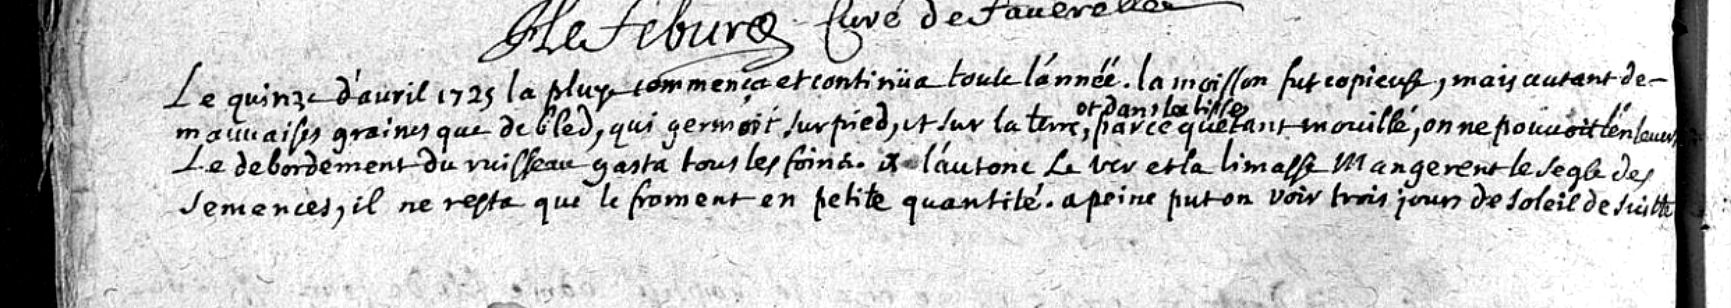 Le Febure Curé de Faverelles
Le quinze d'avril 1725 la pluye commença et continüa toute l'année. la moisson fut copieuse, mais autant de-
mauvaises graines que de bled, qui germoit sur pied, et sur la terre, parce qu'étant mouillé, on ne pouvoit l'enlever.
et dans les
Le debordement du ruisseau gasta tous les foins. a l'autone Le ver et la limasse Mangerent le segle des
semences, il ne resta que le froment en petite quantité. a peine put on voir trois jours de soleil de suitte